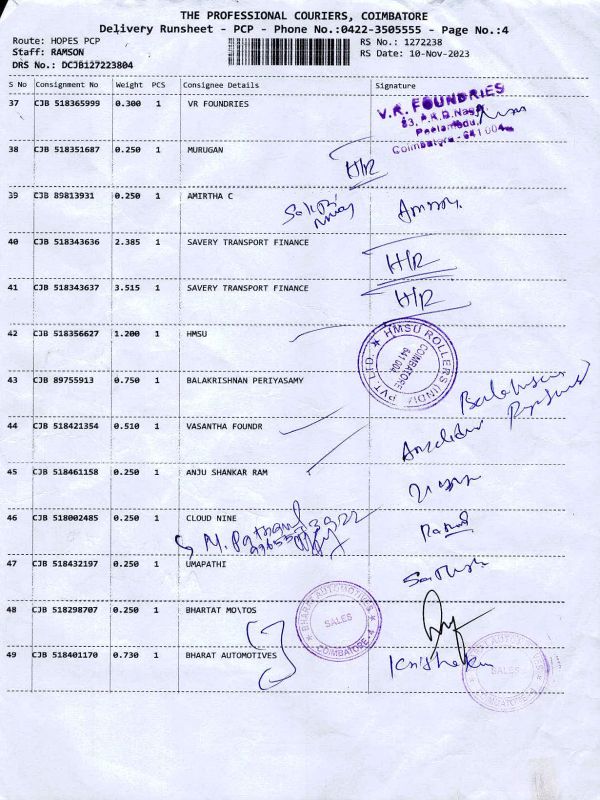 THE PROFESSIONAL COURIERS, COIMBATORE
Delivery Runsheet - PCP - Phone No.:0422-3505555 - Page No.:4
Route: HOPES PCP RS No.: 1272238
Staff: RAMSON RS Date: 10-Nov-2023
DRS No.: DCJB127223804
S No Consignment No Weight PCS Consignee Details Signature
37 CJB 518365999 0.300 1 VR FOUNDRIES
V.R. FOUNDRIES
Peelamedu,
Coimbatore - 641 004
38 CJB 518351687 0.250 1 MURUGAN H/R
39 CJB 89813931 0.250 1 AMIRTHA C
40 CJB 518343636 2.385 1 SAVERY TRANSPORT FINANCE H/R
41 CJB 518343637 3.515 1 SAVERY TRANSPORT FINANCE H/R
42 CJB 518356627 1.200 1 HMSU
HMSU ROLLERS (INDIA) PVT. LTD.
COIMBATORE
641 004
43 CJB 89755913 0.750 1 BALAKRISHNAN PERIYASAMY
44 CJB 518421354 0.510 1 VASANTHA FOUNDR
45 CJB 518461158 0.250 1 ANJU SHANKAR RAM
46 CJB 518002485 0.250 1 CLOUD NINE
47 CJB 518432197 0.250 1 UMAPATHI
48 CJB 518298707 0.250 1 BHARTAT MO\TOS
BHARAT AUTOMOTIVES
SALES
COIMBATORE-4
49 CJB 518401170 0.730 1 BHARAT AUTOMOTIVES
BHARAT AUTOMOTIVES
SALES
COIMBATORE-4